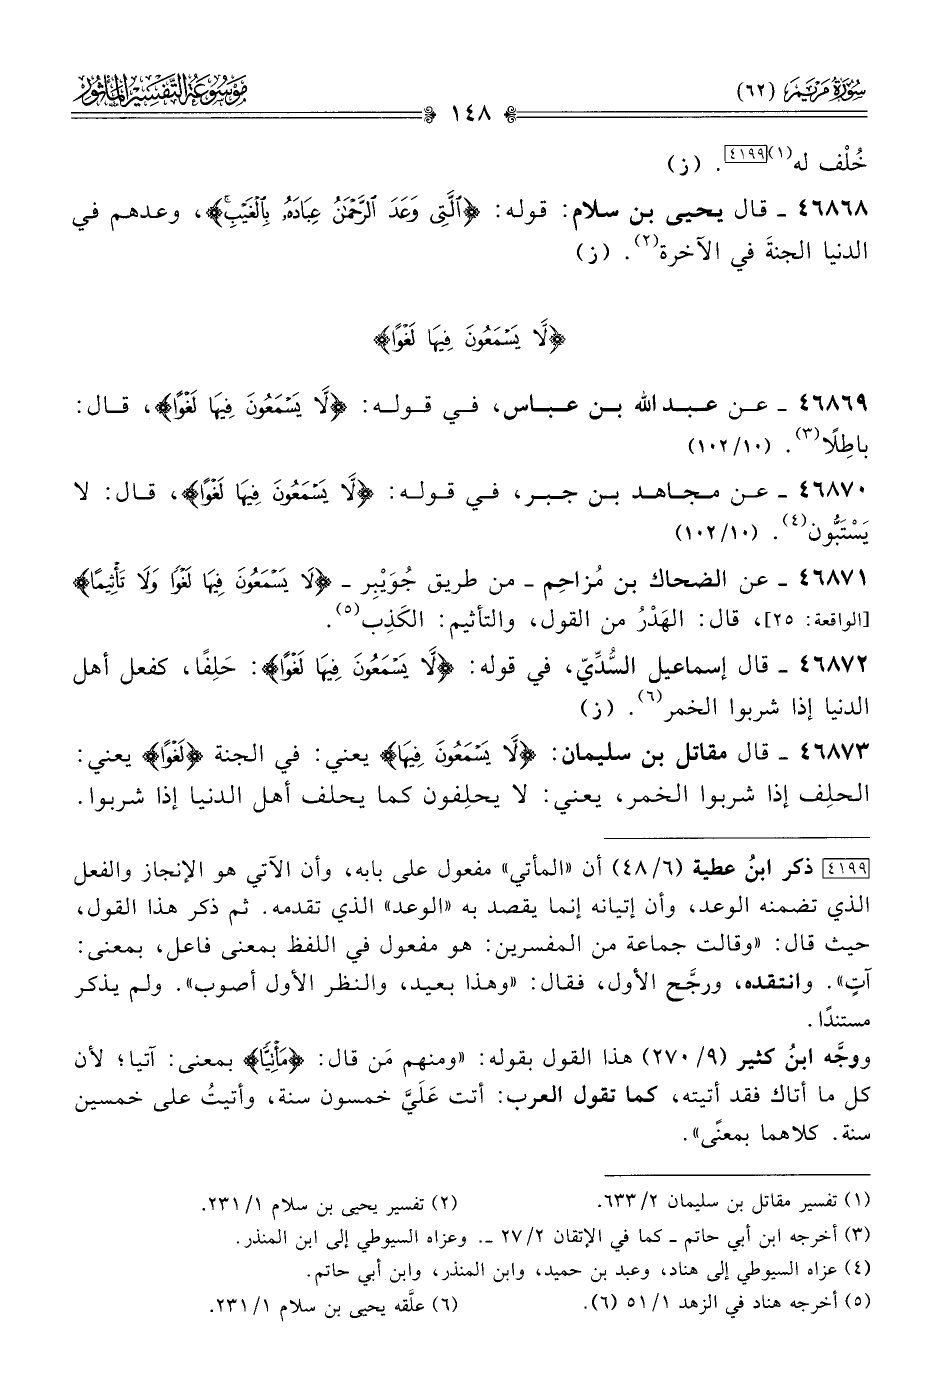 سُورَةُ مَرْيَمَ (٦٢)
١٤٨
مَوْسُوعَة التَّفْسِير المَأثُور
خُلْف له(١)[٤١٩٩]. (ز)
٤٦٨٦٨ ـ قال يحيى بن سلام: قوله: ﴿ٱلَّتِي وَعَدَ ٱلرَّحْمَٰنُ عِبَادَهُۥ بِٱلْغَيْبِۚ﴾، وعدهم في
الدنيا الجنةَ في الآخرة(٢). (ز)
﴿لَّا يَسْمَعُونَ فِيهَا لَغْوًا﴾
٤٦٨٦٩ ـ عـن عـبـد الله بـن عـبـاس، فـي قـولـه: ﴿لَّا يَسْمَعُونَ فِيهَا لَغْوًا﴾، قـال:
باطِلًا(٣). (١٠٢/١٠)
٤٦٨٧٠ ـ عـن مـجـاهـد بـن جـبـر، فـي قـولـه: ﴿لَّا يَسْمَعُونَ فِيهَا لَغْوًا﴾، قـال: لا
يَسْتَبُّون(٤). (١٠٢/١٠)
٤٦٨٧١ ـ عن الضحاك بن مُزاحِم ـ من طريق جُوَيْبِر ـ ﴿لَا يَسْمَعُونَ فِيهَا لَغْوًا وَلَا تَأْثِيمًا﴾
[الواقعة: ٢٥]، قال: الهَدْرُ من القول، والتأثيم: الكَذِب(٥).
٤٦٨٧٢ ـ قال إسماعيل السُّدِّيّ، في قوله: ﴿لَّا يَسْمَعُونَ فِيهَا لَغْوًا﴾: حَلِفًا، كفعل أهل
الدنيا إذا شربوا الخمر(٦). (ز)
٤٦٨٧٣ ـ قال مقاتل بن سليمان: ﴿لَّا يَسْمَعُونَ فِيهَا﴾ يعني: في الجنة ﴿لَغْوًا﴾ يعني:
الحلِف إذا شربوا الخمر، يعني: لا يحلِفون كما يحلف أهل الدنيا إذا شربوا.
[٤١٩٩] ذكر ابنُ عطية (٤٨/٦) أن «المأتي» مفعول على بابه، وأن الآتي هو الإنجاز والفعل
الذي تضمنه الوعد، وأن إتيانه إنما يقصد به «الوعد» الذي تقدمه. ثم ذكر هذا القول،
حيث قال: «وقالت جماعة من المفسرين: هو مفعول في اللفظ بمعنى فاعل، بمعنى:
آتٍ». وانتقده، ورجَّح الأول، فقال: «وهذا بعيد، والنظر الأول أصوب». ولم يذكر
مستندًا.
ووجَّه ابنُ كثير (٢٧٠/٩) هذا القول بقوله: «ومنهم مَن قال: ﴿مَأْتِيًّا﴾ بمعنى: آتيا؛ لأن
كل ما أتاك فقد أتيته، كما تقول العرب: أتت عَلَيَّ خمسون سنة، وأتيتُ على خمسين
سنة. كلاهما بمعنًى».
(١) تفسير مقاتل بن سليمان ٦٣٣/٢. (٢) تفسير يحيى بن سلام ٢٣١/١.
(٣) أخرجه ابن أبي حاتم ـ كما في الإتقان ٢٧/٢ ـ. وعزاه السيوطي إلى ابن المنذر.
(٤) عزاه السيوطي إلى هناد، وعبد بن حميد، وابن المنذر، وابن أبي حاتم.
(٥) أخرجه هناد في الزهد ٥١/١ (٦). (٦) علَّقه يحيى بن سلام ٢٣١/١.